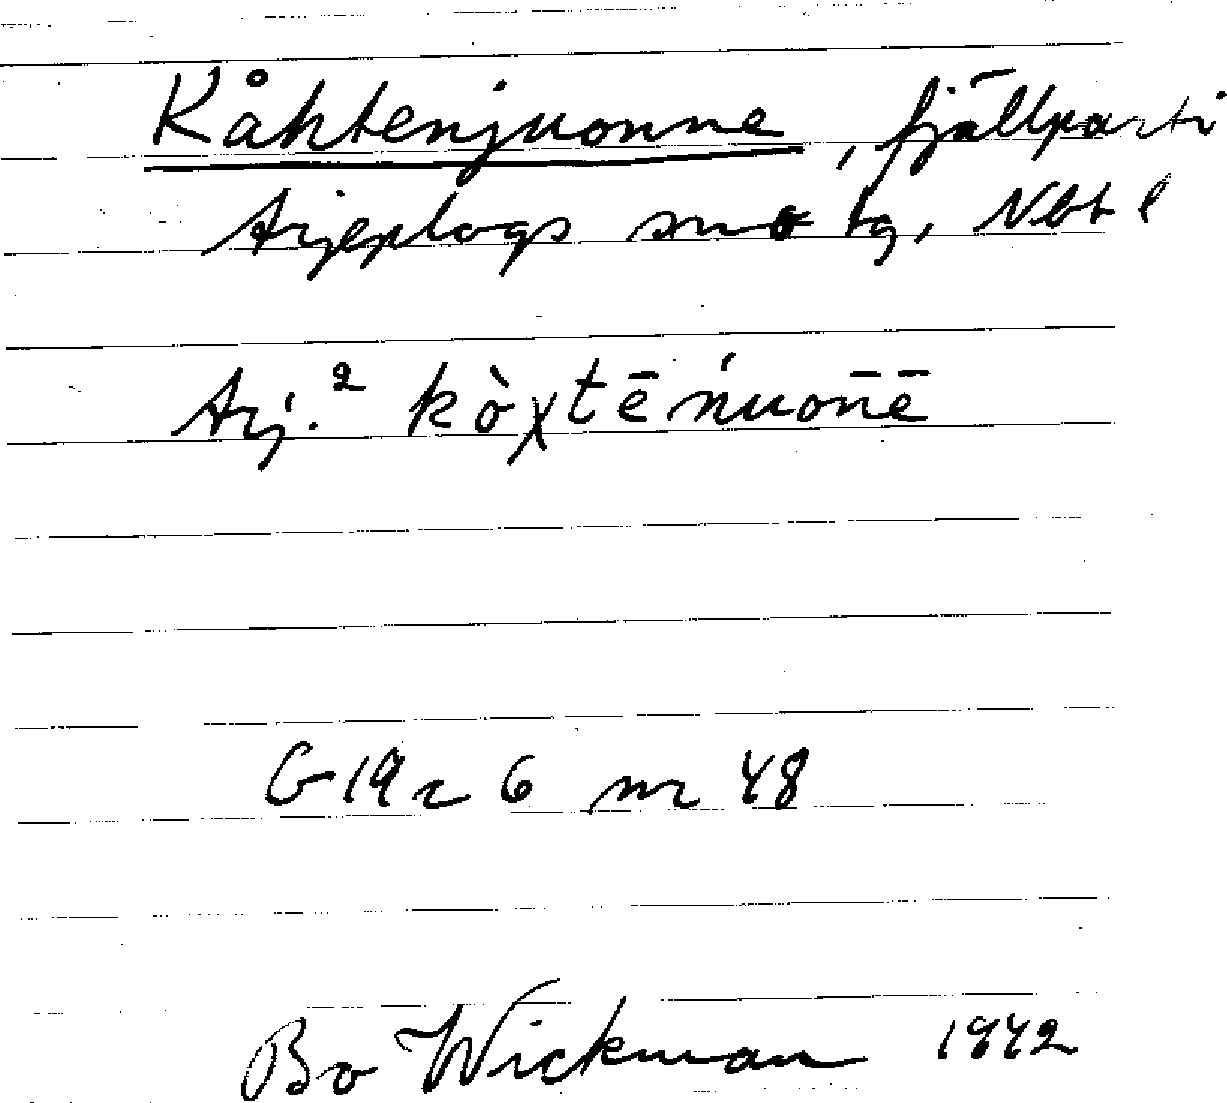 Kåhtenjuonne, fjällparti
Arjeplogs sn o tg, Nbt l
Arj.² kòχtēńuōnē
G 19 r 6 nr 48
Bo Wickman 1942